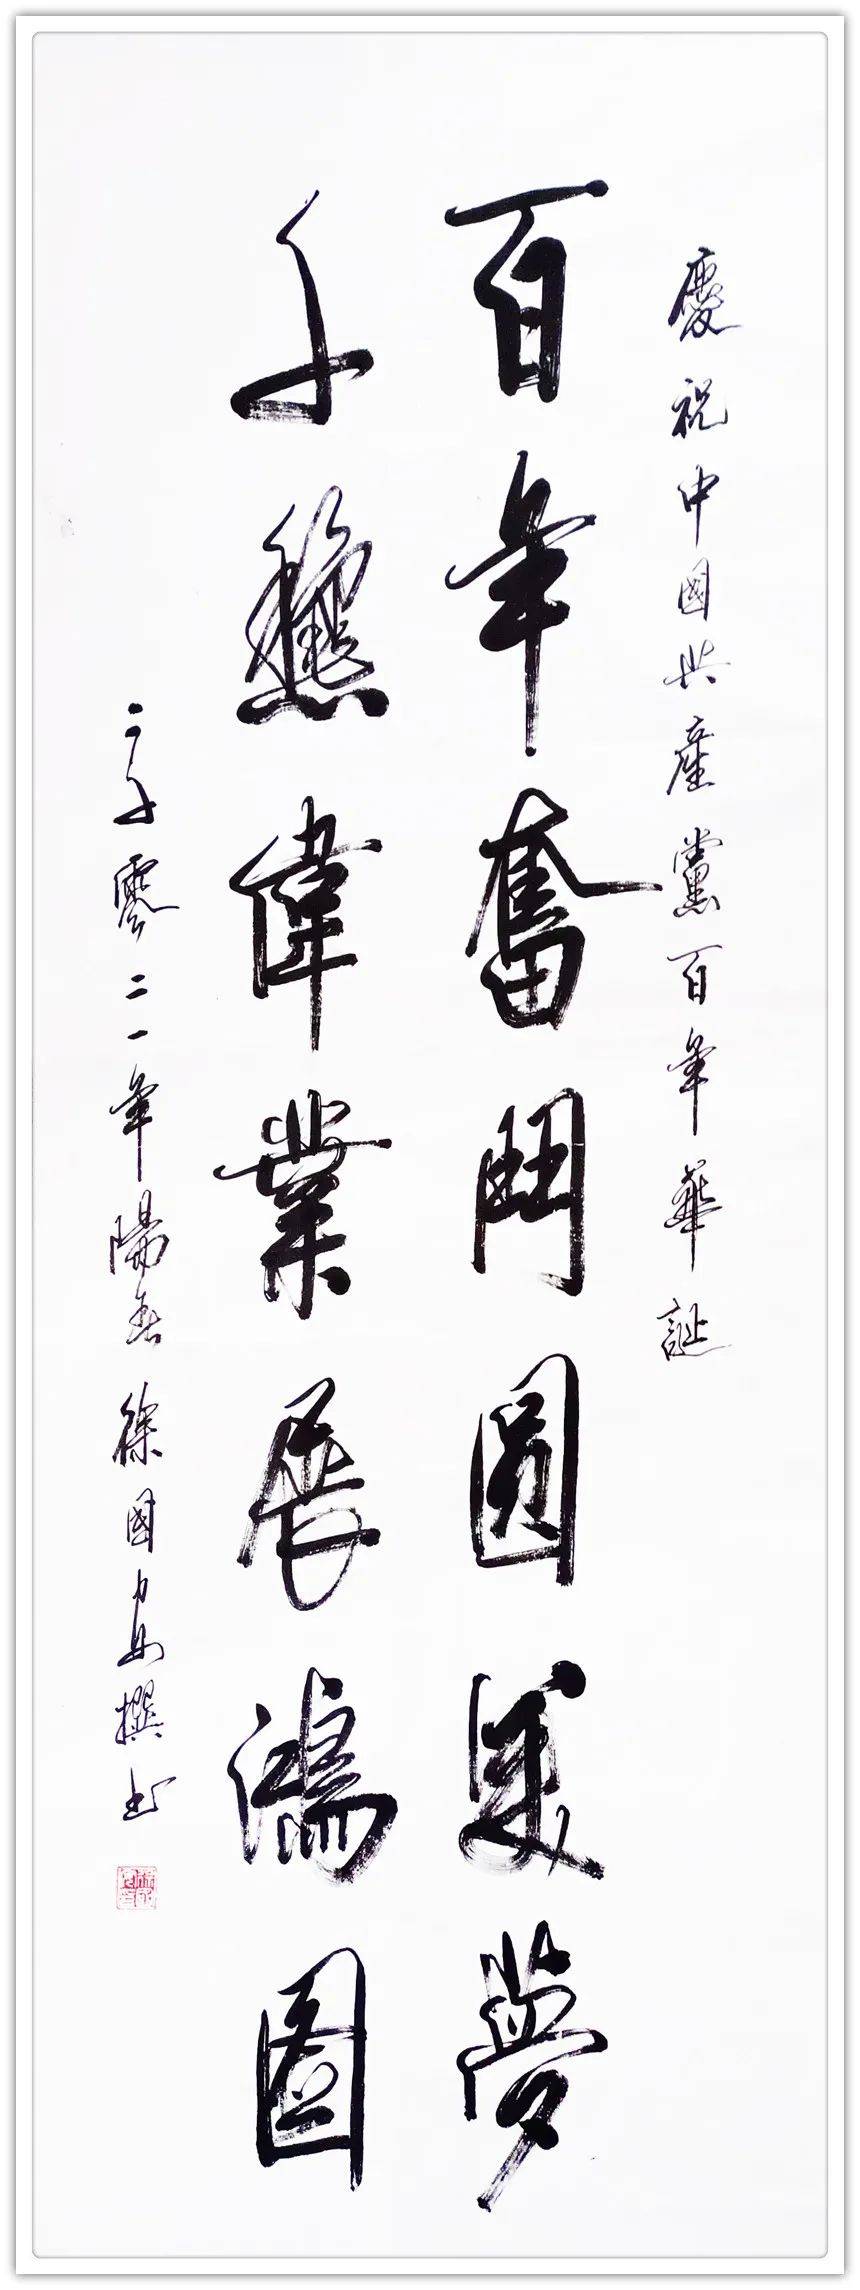 慶祝中國共產黨百年華誕
百年奮鬥圓美夢
千穐偉業展鴻圖
二千零二一年陽春 徐國安撰书